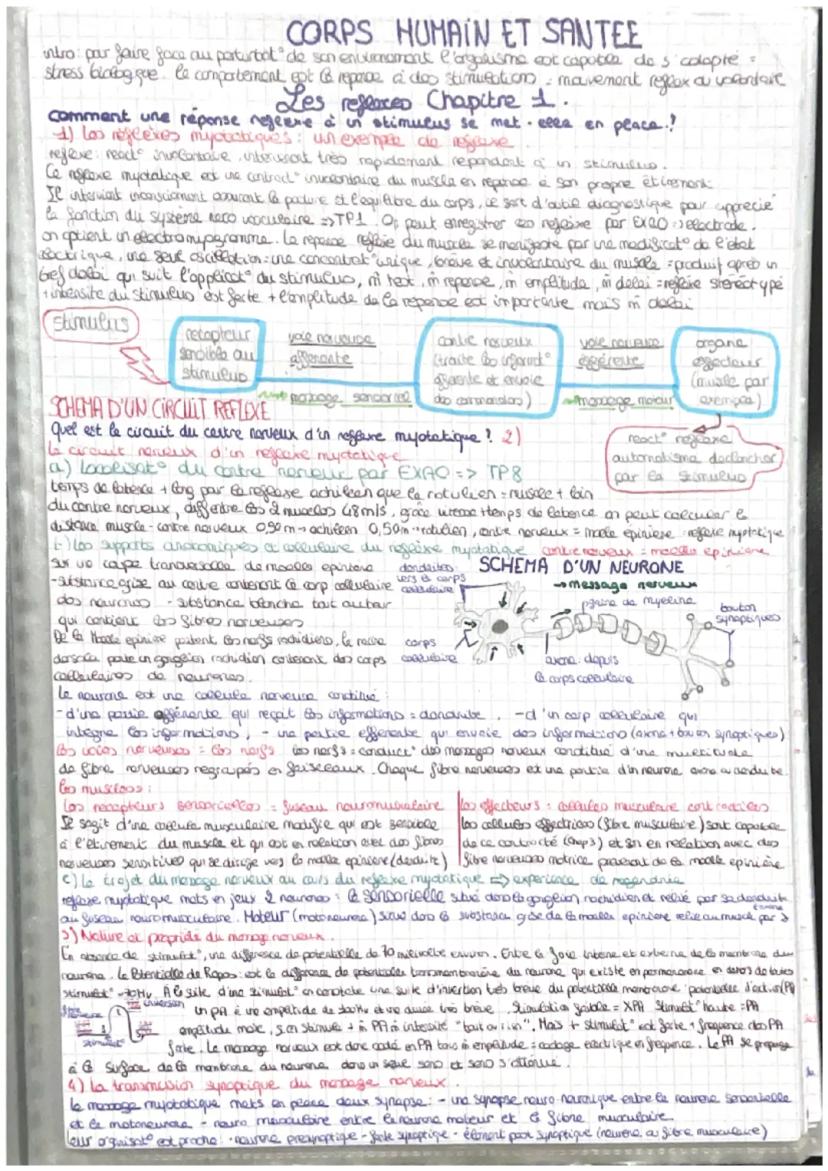 CORPS HUMAIN ET SANTEE
intro: pour faire face au perturbat° de son environnement l'organisme est capable de s'adapté =
stress biologique. le comportement est la réponse à des stimulations = mouvement reflex ou volontaire
Les reflexes Chapitre 1.
Comment une réponse reflexe à un stimulus se met-elle en place?
1) Les réflexes myotatiques: un exemple de reflexe
reflexe: react° involontaire, intervenant très rapidement repondant à un stimulus.
Ce reflexe myotatique est une contract° involontaire du muscle en reponse à son propre étirement.
Il intervient inconsciement assurant la posture et l'équilibre du corps, ce sert d'outil diagnostique pour apprécié
la fonction du système => TP1. On peut enregistrer ce reflexe par EXAO => electrode.
on obtient un electromyogramme. La reponse reflexe du muscle se manifeste par une modificat° de l'état
électrique, une seule oscillation: une contract° unique, brève et involontaire du muscle = produit après un
bref delai qui suit l'applicat° du stimulus, m̂ test, m̂ reponse, m̂ amplitude, m̂ delai = reflexe stéréotypé
+ intensité du stimulus est forte + l'amplitude de la reponse est importante mais m̂ delai
stimulus
recepteur sensible au stimulus
voie nerveuse afferente
message sensoriel
centre nerveux (traite les informat° afferente et envoie des commandes)
voie nerveuse efférente
message moteur
organe effecteur (muscle par exemple)
SCHEMA D'UN CIRCUIT REFLEXE
react° reflexe automatisme declencher par le stimulus
Quel est le circuit du centre nerveux d'un reflexe myotatique? 2)
Le circuit nerveux d'un reflexe myotatique
a) Localisat° du centre nerveux par EXAO => TP8
temps de latence + long par le reflexe achiléen que le rotulien = muscle + loin
du centre nerveux, differe les 2 muscles 48m/s, grace vitesse + temps de latence on peut calculer la
distance muscle-centre nerveux 0,90m → achiléen 0,50m → rotulien, centre nerveux = moelle epiniere reflexe myotatique
b) les supports anatomiques et cellulaire du reflexe myotatique centre nerveux = moelle epiniere
sur une coupe transversale de moelle epiniere
-substance grise au centre contenant le corp cellulaire
des neurones - substance blanche tout autour
qui contient les fibres nerveuses
De la Moelle epiniere partent les nerfs rachidiens, la racine
dorsale porte un ganglion rachidien contenant des corps
cellulaires de neurones.
SCHEMA D'UN NEURONE
dendrites: vers le corps cellulaire
→ message nerveux
gaine de myeline
bouton synaptiques
corps cellulaire
axone: depuis le corps cellulaire
Le neurone est une cellule nerveuse constitué:
-d'une partie afférente qui reçoit les informations = dendrite. -d'un corp cellulaire qui
integre les informations, - une partie efferente qui envoie des informations (axone + bouton synaptiques)
Les voies nerveuses = les nerfs les nerfs = conduct° des messages nerveux constitué d'une multitude
de fibre nerveuses regroupés en faisceaux. Chaque fibre nerveuses est une partie d'un neurone axone ou dendrite.
Les muscles:
Les recepteurs sensorielles = fuseau neuromusculaire
Il sagit d'une cellule musculaire modifie qui est sensible
à l'étirement du muscle et qui est en relation avec des fibres
nerveuses sensitives qui se dirige vers la moelle epiniere (dendrite)
les effecteurs: cellules musculaire contractiles
les cellules effectrices (fibre musculaire) sont capables
de ce contracté (Chap3) et sont en relation avec des
fibre nerveuses motrice provenant de la moelle epinière
c) Le trajet du message nerveux au cours du reflexe myotatique => expérience de magendie
reflexe myotatique mets en jeux 2 neurones: le sensorielle situé dans le ganglion rachidien et relié par sa dendrite
au fuseau neuromusculaire. Moteur (motoneurone) situé dans la substance grise de la moelle epiniere relié au muscle par axone
3) Nature et propriété du message nerveux.
En absence de stimulat°, une difference de potentielle de 70 millivolte environ. Entre la face interne et externe de la membrane du
neurone. Le Potentielle de Repos: est la difference de potentielle transmembranaire du neurone qui existe en permanence en dehors de toutes
stimulat° -70mv. A la suite d'une stimulat° on constate une suite d'inversion très breve du potentielle membranaire: potentielle d'action (PA)
inversion
stimulat°
un PA à une amplitude de 100mv et une durée très brève. Stimulation faible = XPA Stimulat° haute = PA
amplitude , "tout ou rien". Mais + stimulat° est forte + frequence des PA
forte. Le message nerveux est donc codé en PA tous m̂ amplitude: codage électrique en frequence. Le PA se propage
à la surface de la membrane du neurone dans un seul sens et sans s'attenué.
4) La transmission synaptique du message nerveux.
Le message myotatique mets en place deux synapse: - une synapse neuro-neuronique entre le neurone sensorielle
et le motoneurone - neuro musculaire entre le neurone moteur et la fibre musculaire
leur organisat° est proche: -neurone presynaptique - fente synaptique - élément post synaptique (neurone ou fibre musculaire)